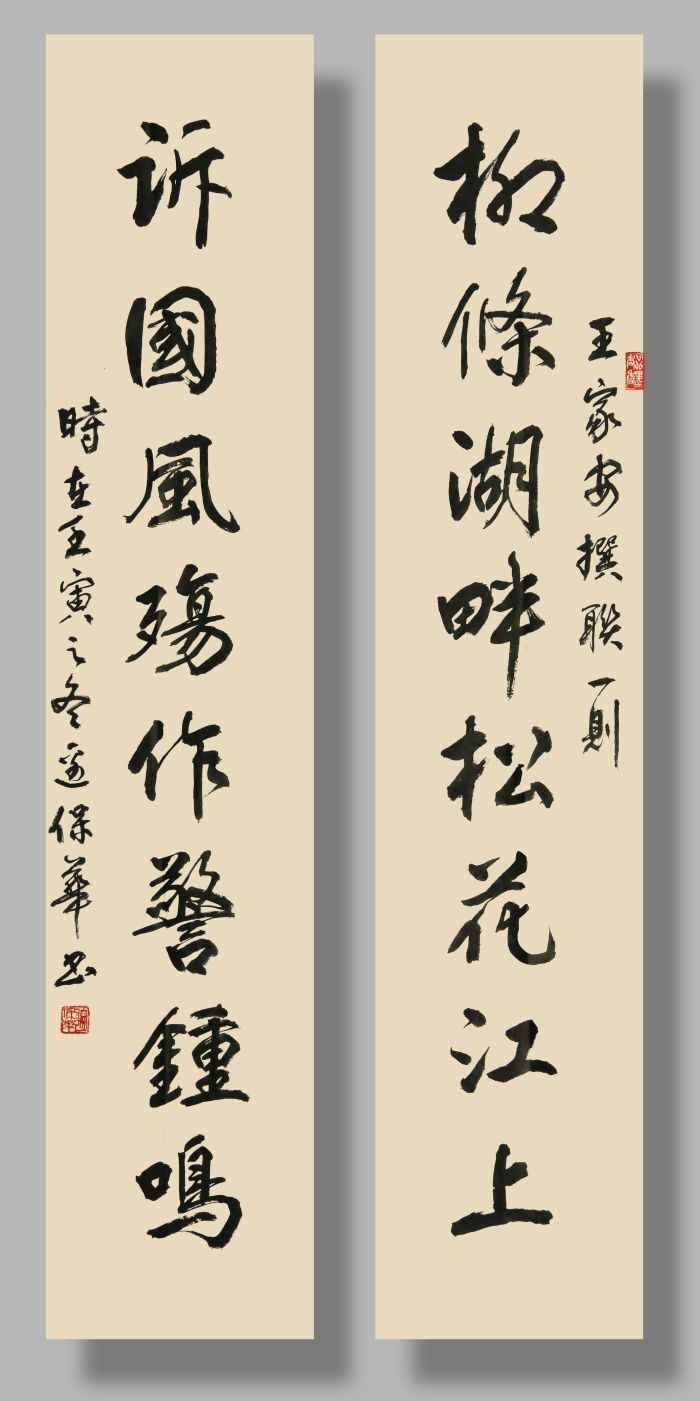 王家安撰聯一則
柳條湖畔松花江上
訴國風殤作警鍾鳴
時在壬寅之冬邊保華書